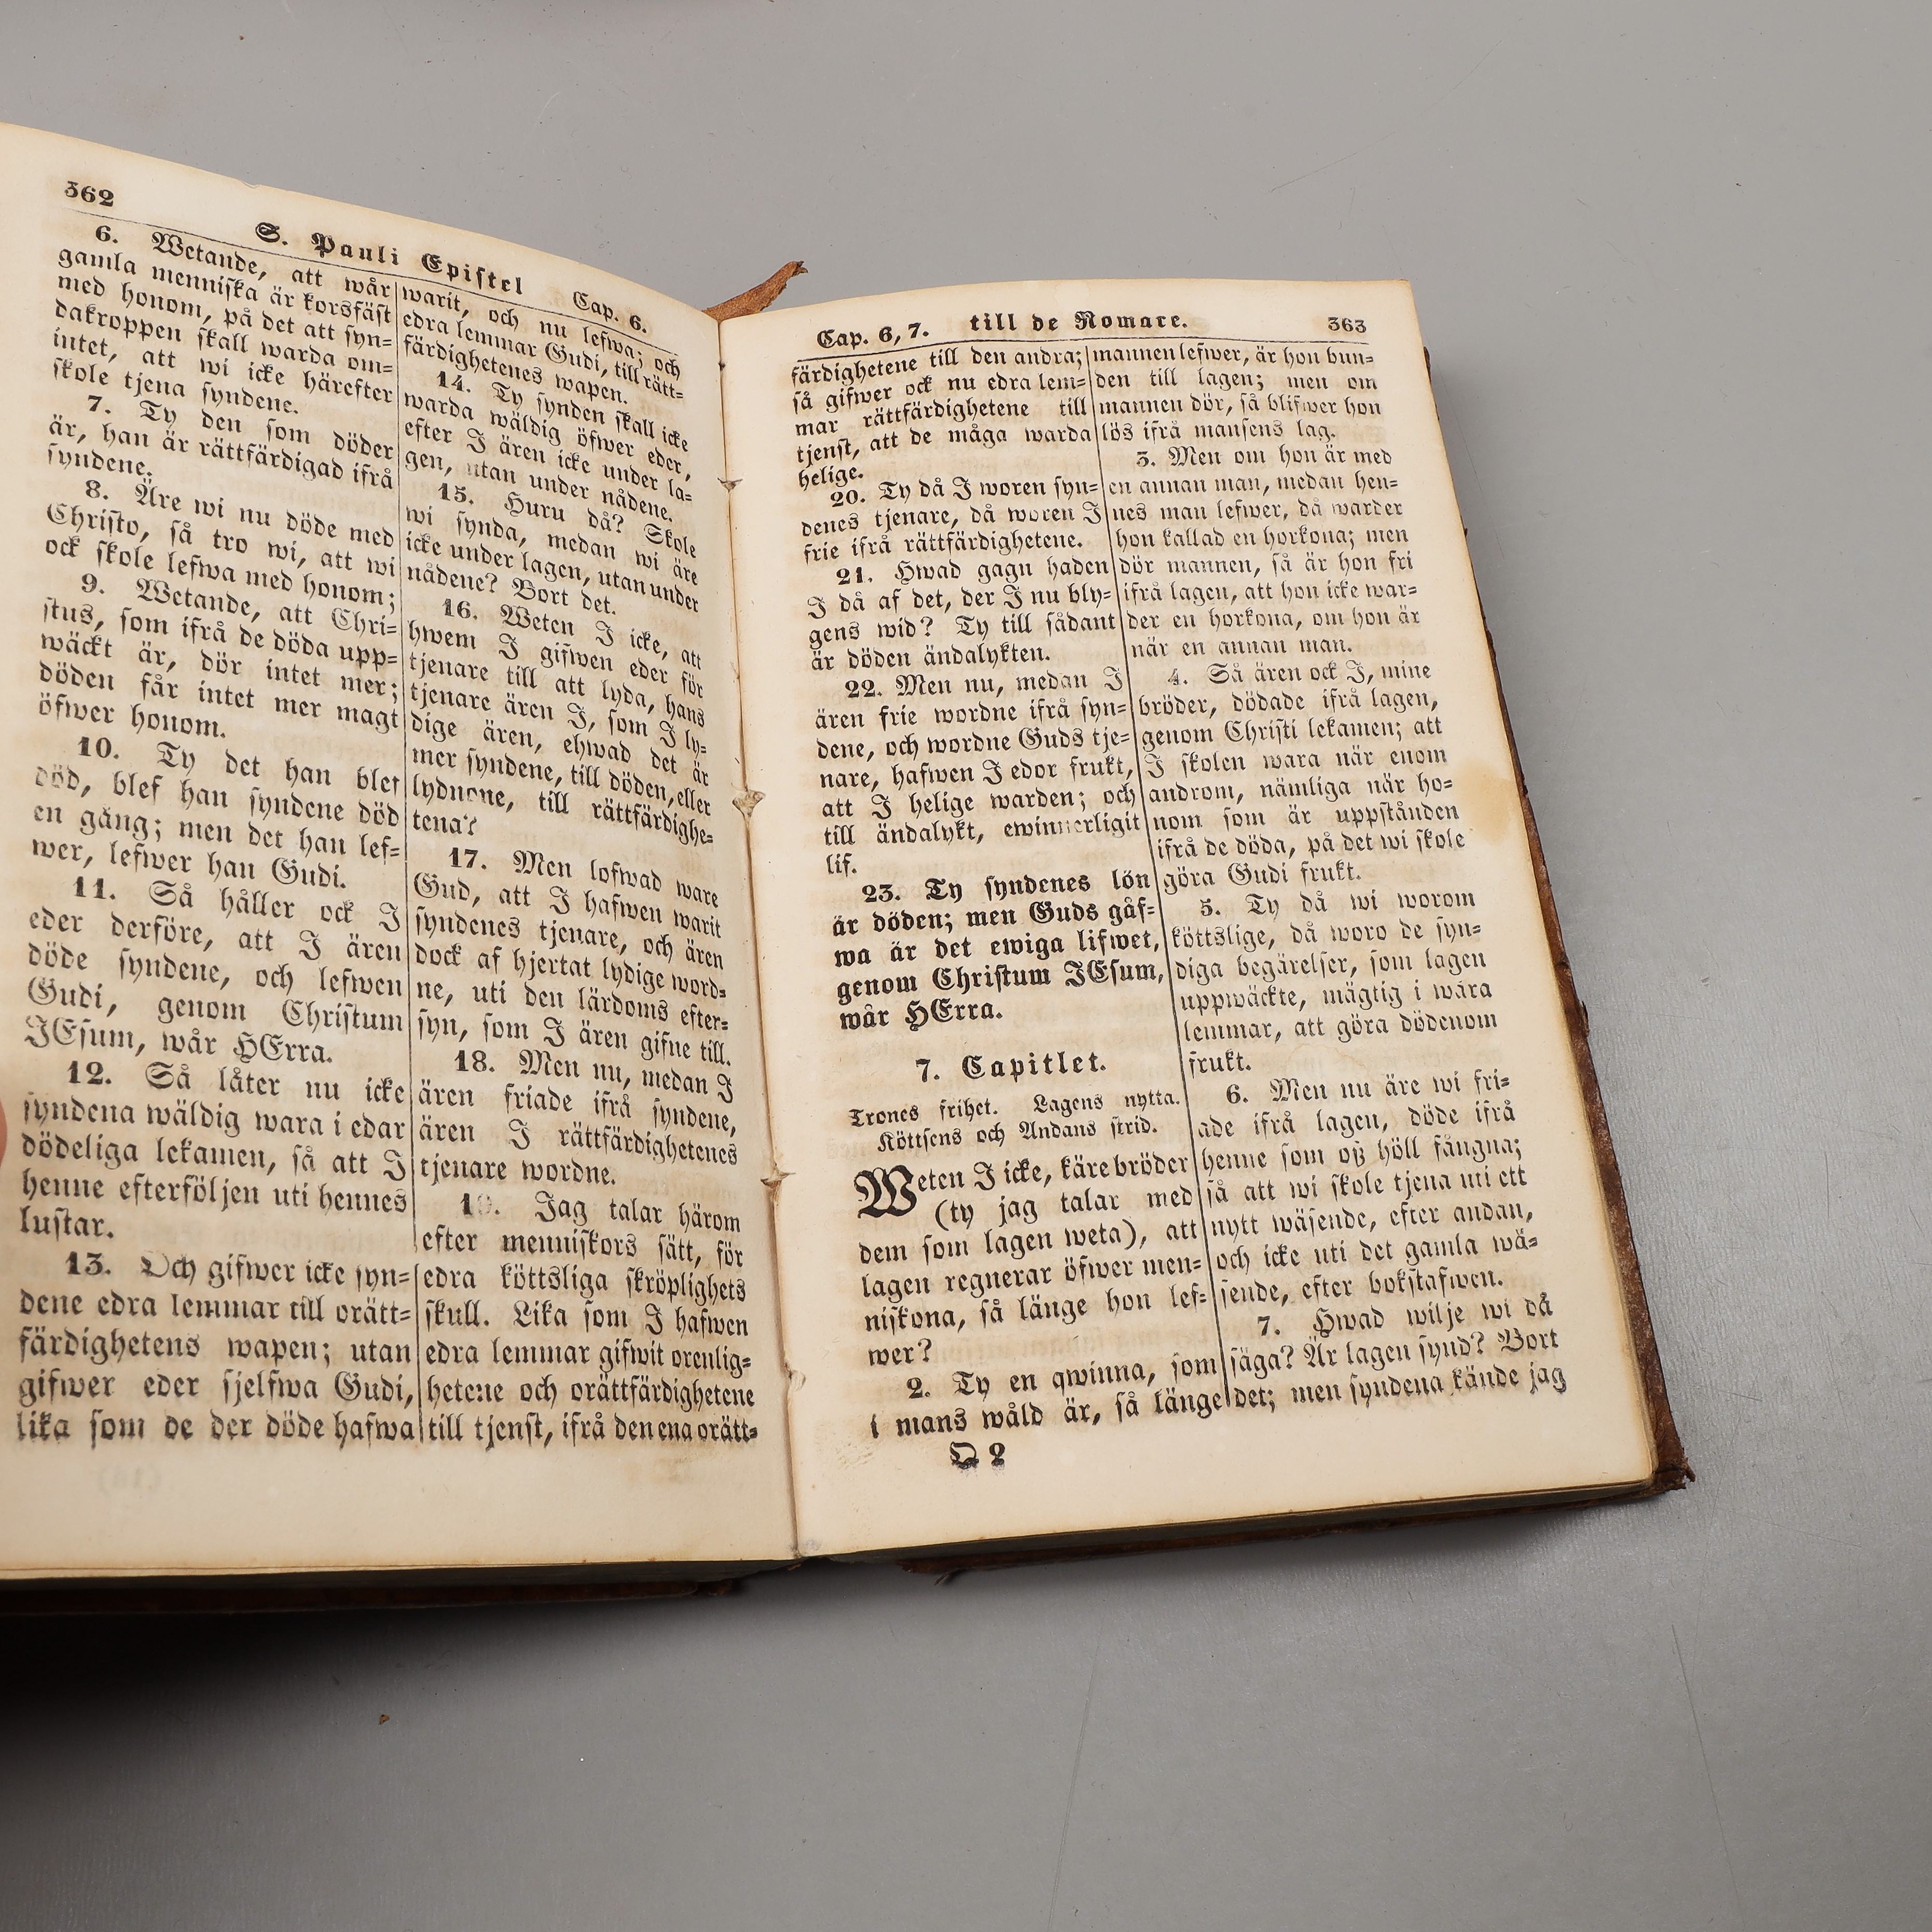 362
S. Pauli Epistel
Cap. 6.
6. Wetande, att wår
gamla menniska är korsfäst
med honom, på det att syn=
dakroppen skall warda om=
intet, att wi icke härefter
skole tjena syndene.
7. Ty den som döder
är, han är rättfärdigad ifrå
syndene.
8. Äre wi nu döde med
Christo, så tro wi, att wi
ock skole lefwa med honom;
9. Wetande, att Chri=
stus, som ifrå de döda upp=
wäckt är, dör intet mer;
döden får intet mer magt
öfwer honom.
10. Ty det han blef
död, blef han syndene död
en gång; men det han lef=
wer, lefwer han Gudi.
11. Så håller ock I
eder derföre, att I ären
döde syndene, och lefwen
Gudi, genom Christum
JEsum, wår HErra.
12. Så låter nu icke
syndena wäldig wara i edar
dödeliga lekamen, så att I
henne efterföljen uti hennes
lustar.
13. Och gifwer icke syn=
dene edra lemmar till orätt=
färdighetens wapen; utan
gifwer eder sjelfwa Gudi,
lika som de der döde hafwa
warit, och nu lefwa; och
edra lemmar Gudi, till rätt=
färdighetenes wapen.
14. Ty synden skall icke
warda wäldig öfwer eder,
efter I ären icke under la=
gen, utan under nådene.
15. Huru då? Skole
wi synda, medan wi äre
icke under lagen, utan under
nådene? Bort det.
16. Weten I icke, att
hwem I gifwen eder för
tjenare till att lyda, hans
tjenare ären I, som I ly=
dige ären, ehwad det är
mer syndene, till döden, eller
lydnone, till rättfärdighe=
tena?
17. Men lofwad ware
Gud, att I hafwen warit
syndenes tjenare, och ären
dock af hjertat lydige word=
ne, uti den lärdoms efter=
syn, som I ären gifne till.
18. Men nu, medan I
ären friade ifrå syndene,
ären I rättfärdighetenes
tjenare wordne.
19. Jag talar härom
efter menniskors sätt, för
edra köttsliga skröplighets
skull. Lika som I hafwen
edra lemmar gifwit orenlig=
hetene och orättfärdighetene
till tjenst, ifrå den ena orätt=
Cap. 6, 7.
till de Romare.
363
färdighetene till den andra;
så gifwer ock nu edra lem=
mar rättfärdighetene till
tjenst, att de måga warda
helige.
20. Ty då I woren syn=
denes tjenare, då woren I
frie ifrå rättfärdighetene.
21. Hwad gagn haden
I då af det, der I nu bly=
gens wid? Ty till sådant
är döden ändalykten.
22. Men nu, medan I
ären frie wordne ifrå syn=
dene, och wordne Guds tje=
nare, hafwen I edor frukt,
att I helige warden; och
till ändalykt, ewinnerligit
lif.
23. Ty syndenes lön
är döden; men Guds gåf=
wa är det ewiga lifwet,
genom Christum JEsum,
wår HErra.
7. Capitlet.
Trones frihet. Lagens nytta.
Köttsens och Andans strid.
Weten I icke, käre bröder
(ty jag talar med
dem som lagen weta), att
lagen regnerar öfwer men=
niskona, så länge hon lef=
wer?
2. Ty en qwinna, som
i mans wåld är, så länge
mannen lefwer, är hon bun=
den till lagen; men om
mannen dör, så blifwer hon
lös ifrå mansens lag.
3. Men om hon är med
en annan man, medan hen=
nes man lefwer, då warder
hon kallad en horkona; men
dör mannen, så är hon fri
ifrå lagen, att hon icke war=
der en horkona, om hon är
när en annan man.
4. Så ären ock I, mine
bröder, dödade ifrå lagen,
genom Christi lekamen; att
I skolen wara när enom
androm, nämliga när ho=
nom som är uppstånden
ifrå de döda, på det wi skole
göra Gudi frukt.
5. Ty då wi worom
köttslige, då woro de syn=
diga begärelser, som lagen
uppwäckte, mägtig i wåra
lemmar, att göra dödenom
frukt.
6. Men nu äre wi fri=
ade ifrå lagen, döde ifrå
henne som oß höll fångna;
så att wi skole tjena uti ett
nytt wäsende, efter andan,
och icke uti det gamla wä=
sende, efter bokstafwen.
7. Hwad wilje wi då
säga? Är lagen synd? Bort
det; men syndena kände jag
Q 2